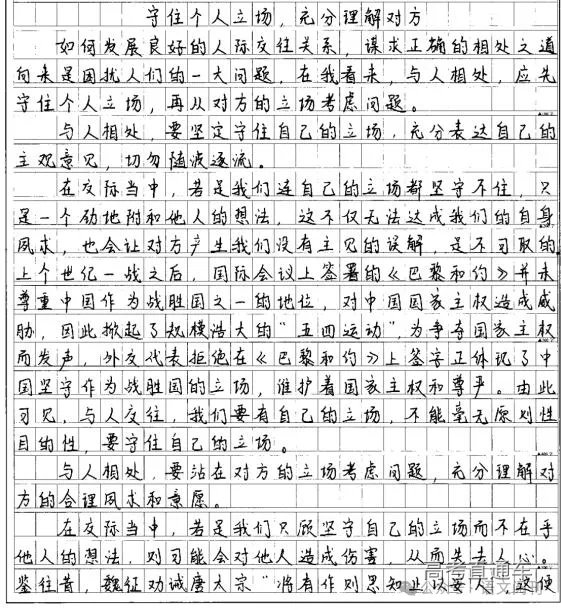 守住个人立场,充分理解对方
如何发展良好的人际交往关系,谋求正确的相处之道
向来是困扰人们的一大问题,在我看来,与人相处,应先
守住个人立场,再从对方的立场考虑问题。
与人相处,要坚定守住自己的立场,充分表达自己的
主观意见,切勿随波逐流。
在交际当中,若是我们连自己的立场都坚守不住,只
是一个劲地附和他人的想法,这不仅无法达成我们的自身
夙求,也会让对方产生我们没有主见的误解,是不可取的
上个世纪一战之后,国际会议上签署的《巴黎和约》并未
尊重中国作为战胜国之一的地位,对中国国家主权造成威
胁,因此掀起了规模浩大的“五四运动”,为争夺国家主权
而发声,外交代表拒绝在《巴黎和约》上签字正体现了中
国坚守作为战胜国的立场,维护着国家主权和尊严。由此
可见,与人交往,我们要有自己的立场,不能毫无原则性
目的性,要守住自己的立场。
与人相处,要沾在对方的立场考虑问题,充分理解对
方的合理夙求和意愿。
在交际当中,若是我们只顾坚守自己的立场而不在乎
他人的想法,则可能会对他人造成伤害,从而失去人心。
鉴往昔,魏征劝诫唐太宗“将有作则思知止以安人”,这便
高考直通车